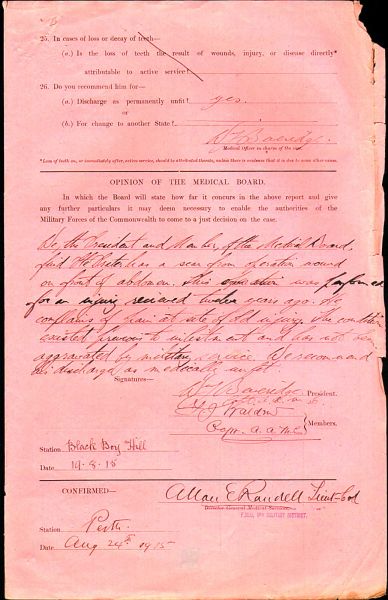 25. In cases of loss or decay of teeth—
(a.) Is the loss of teeth the result of wounds, injury, or disease directly*
attributable to active service?
26. Do you recommend him for—
(a.) Discharge as permanently unfit? yes.
or
(b.) For change to another State?
Medical Officer in charge of the case.
*Loss of teeth on, or immediately after, active service, should be attributed thereto, unless there is evidence that it is due to some other cause.
OPINION OF THE MEDICAL BOARD.
In which the Board will state how far it concurs in the above report and give
any further particulars it may deem necessary to enable the authorities of the
Military Forces of the Commonwealth to come to a just decision on the case.
We the President and Member of the Medical Board,
find Pte has a scar from operation wound
on front of abdomen. This operation was performed
for an injury received twelve years ago. He
complains of pain at site of old injury. This condition
existed previous to enlistment and has not been
aggravated by military service. We recommend
his discharge as medically unfit.
Signatures—
President.
Waldron
Capt. A.A.M.C.
Members.
Station Black Boy Hill
Date 19.8.15
CONFIRMED— Allan E Randell Lieut-Col
Director-General Medical Services
P.M.O., 5TH MILITARY DISTRICT.
Station Perth
Date Aug 24th 1915